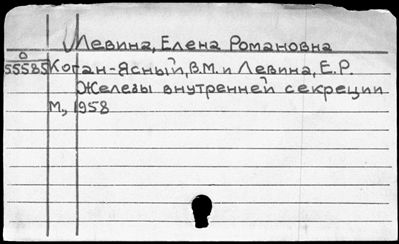 Левина, Елена Романовна
0
55585 Коган-Ясный, В.М. и Левина, Е.Р.
Железы внутренней секреции
М., 1958